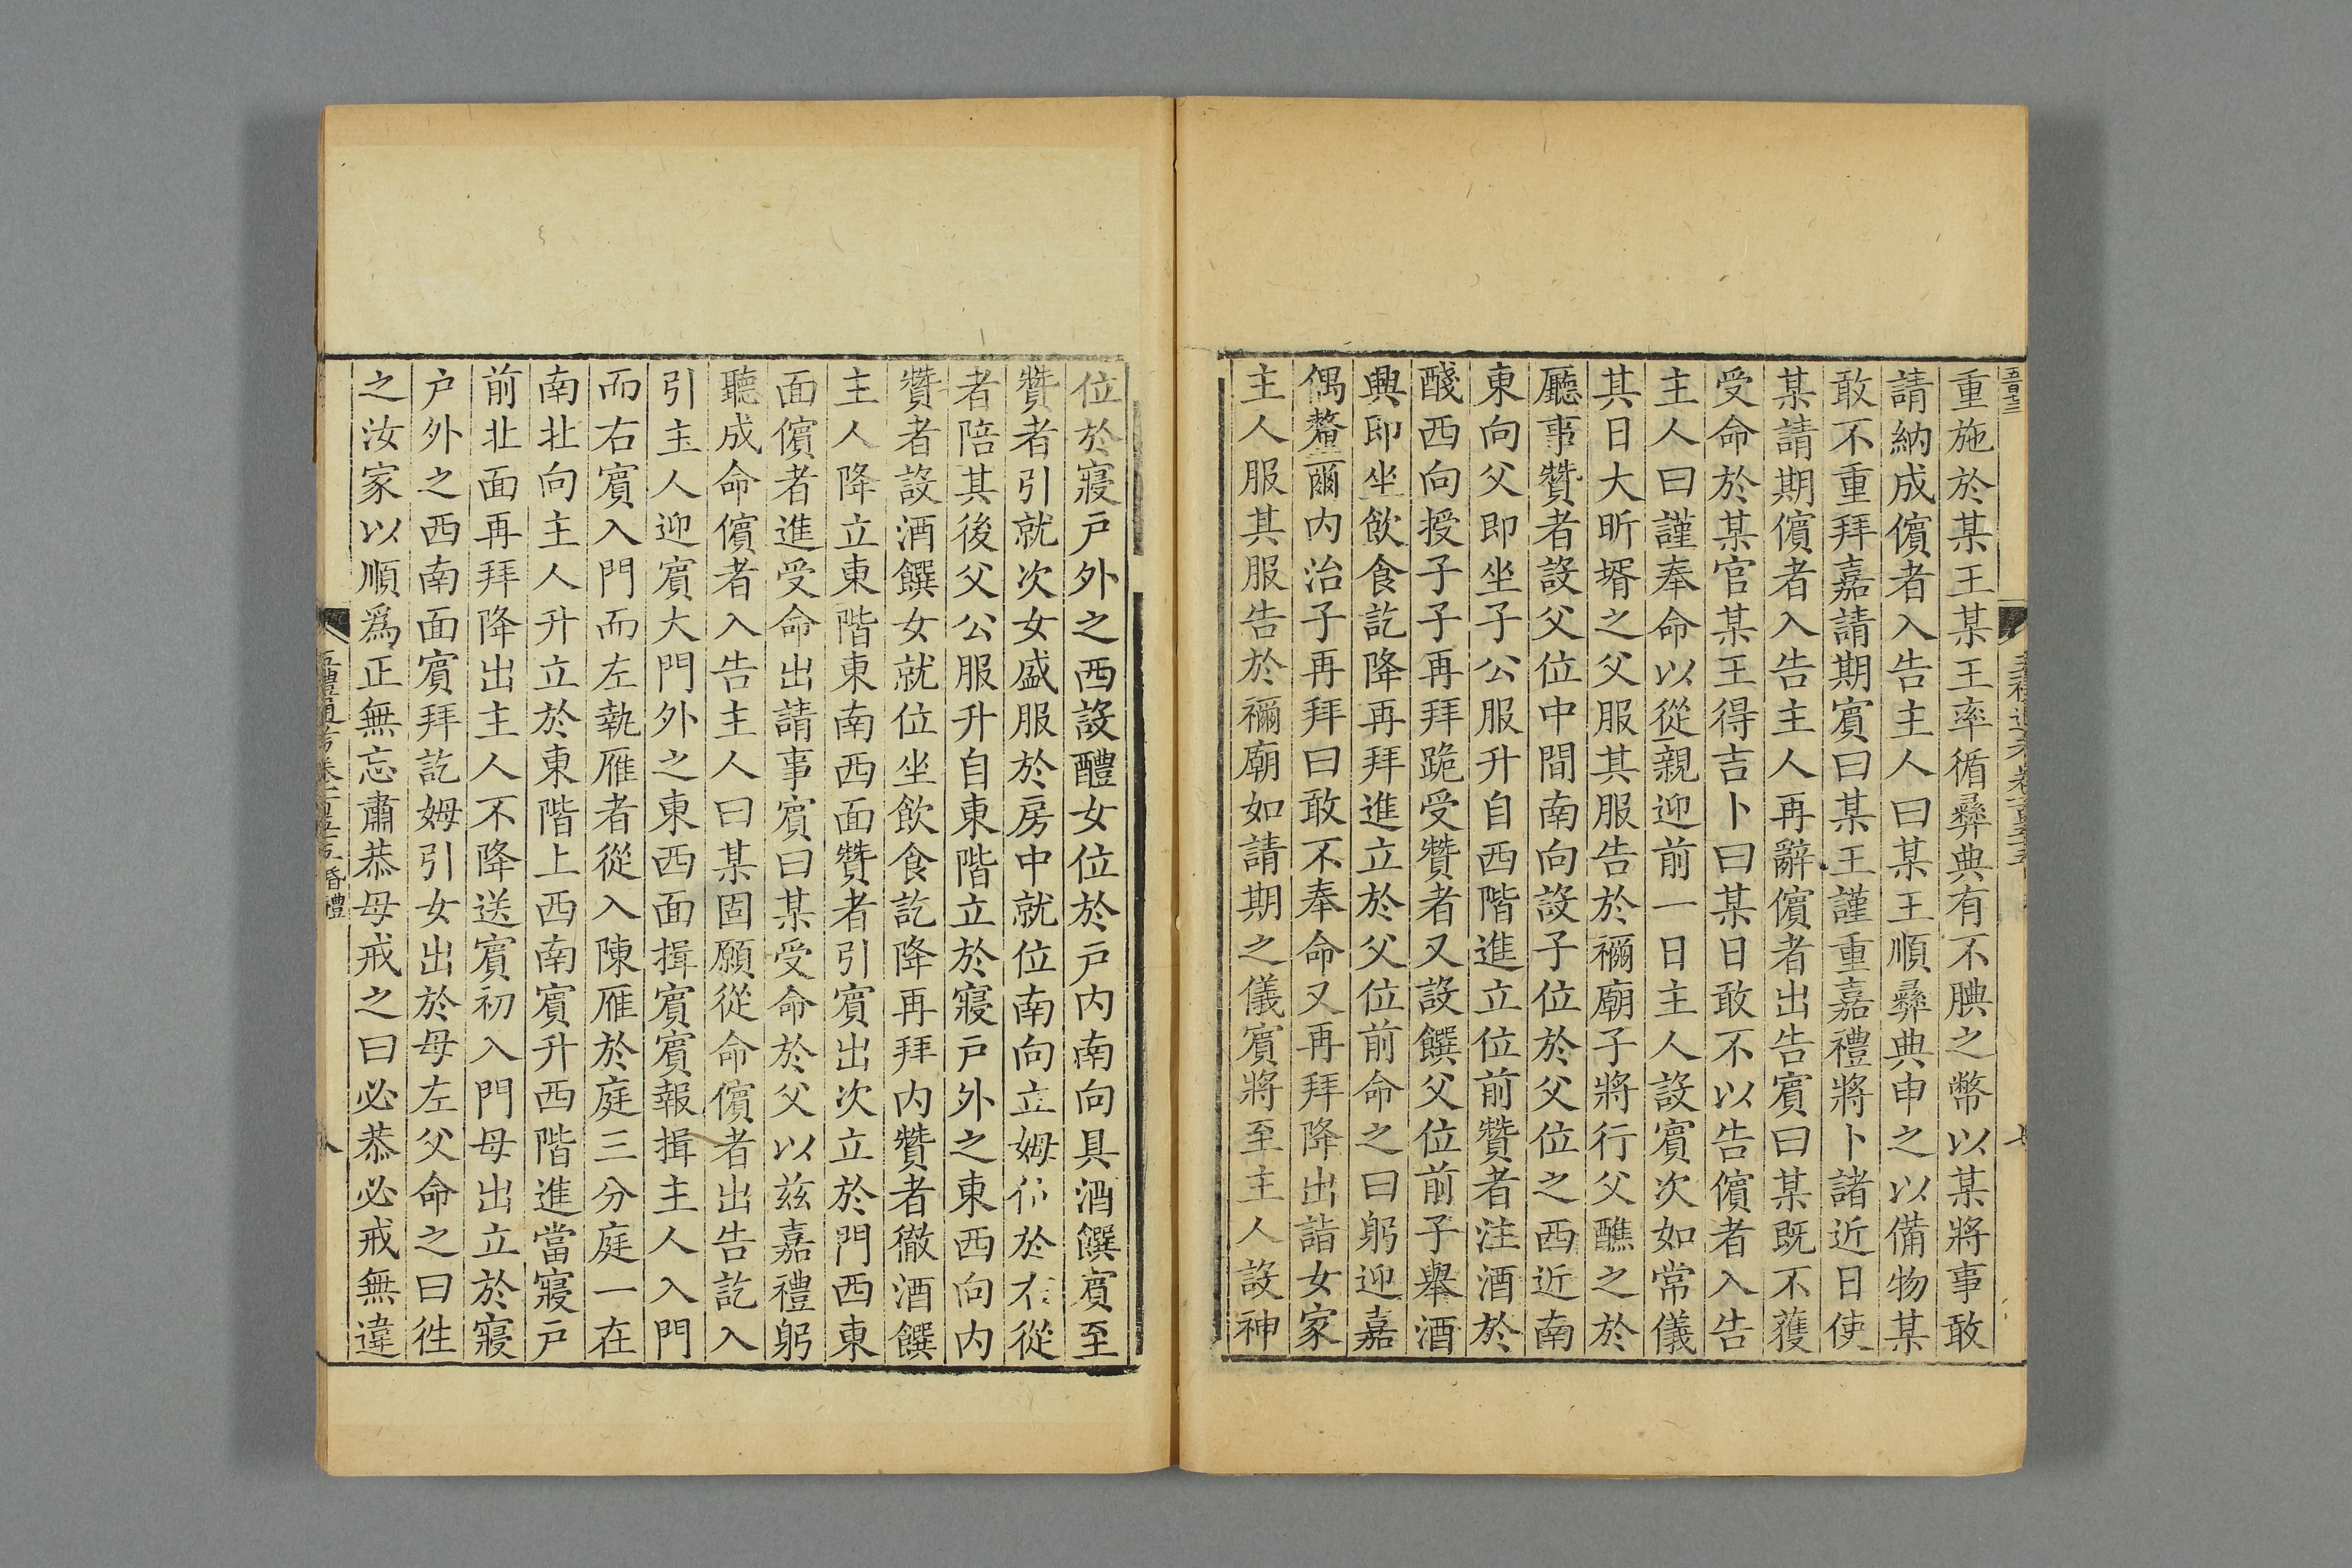 重施於某王某王率循彝典有不腆之幣以某將事敢
請納成儐者入告主人曰某王順彝典申之以備物某
敢不重拜嘉請期賓曰某王謹重嘉禮將卜諸近日使
某請期儐者入告主人再辭儐者出告賓曰某既不獲
受命於某官某王得吉卜曰某日敢不以告儐者入告
主人曰謹奉命以從親迎前一日主人設賓次如常儀
其日大昕壻之父服其服告於禰廟子將行父醮之於
廳事贊者設父位中間南向設子位於父位之西近南
東向父即坐子公服升自西階進立位前贊者注酒於
醆西向授子子再拜跪受贊者又設饌父位前子舉酒
興即坐飲食訖降再拜進立於父位前命之曰躬迎嘉
偶釐爾内治子再拜曰敢不奉命又再拜降出詣女家
主人服其服告於禰廟如請期之儀賓將至主人設神
位於寢戸外之西設醴女位於戸内南向具酒饌賓至
贊者引就次女盛服於房中就位南向立姆位於右從
者陪其後父公服升自東階立於寢戸外之東西向内
贊者設酒饌女就位坐飲食訖降再拜内贊者徹酒饌
主人降立東階東南西面贊者引賓出次立於門西東
面儐者進受命出請事賓曰某受命於父以兹嘉禮躬
聽成命儐者入告主人曰某固願從命儐者出告訖入
引主人迎賓大門外之東西面揖賓賓報揖主人入門
而右賓入門而左執雁者從入陳雁於庭三分庭一在
南北向主人升立於東階上西南賓升西階進當寢戸
前北面再拜降出主人不降送賓初入門母出立於寢
戸外之西南面賓拜訖姆引女出於母左父命之曰徃
之汝家以順爲正無忘肅恭母戒之曰必恭必戒無違
五禮通考卷一百五十五昏禮
八